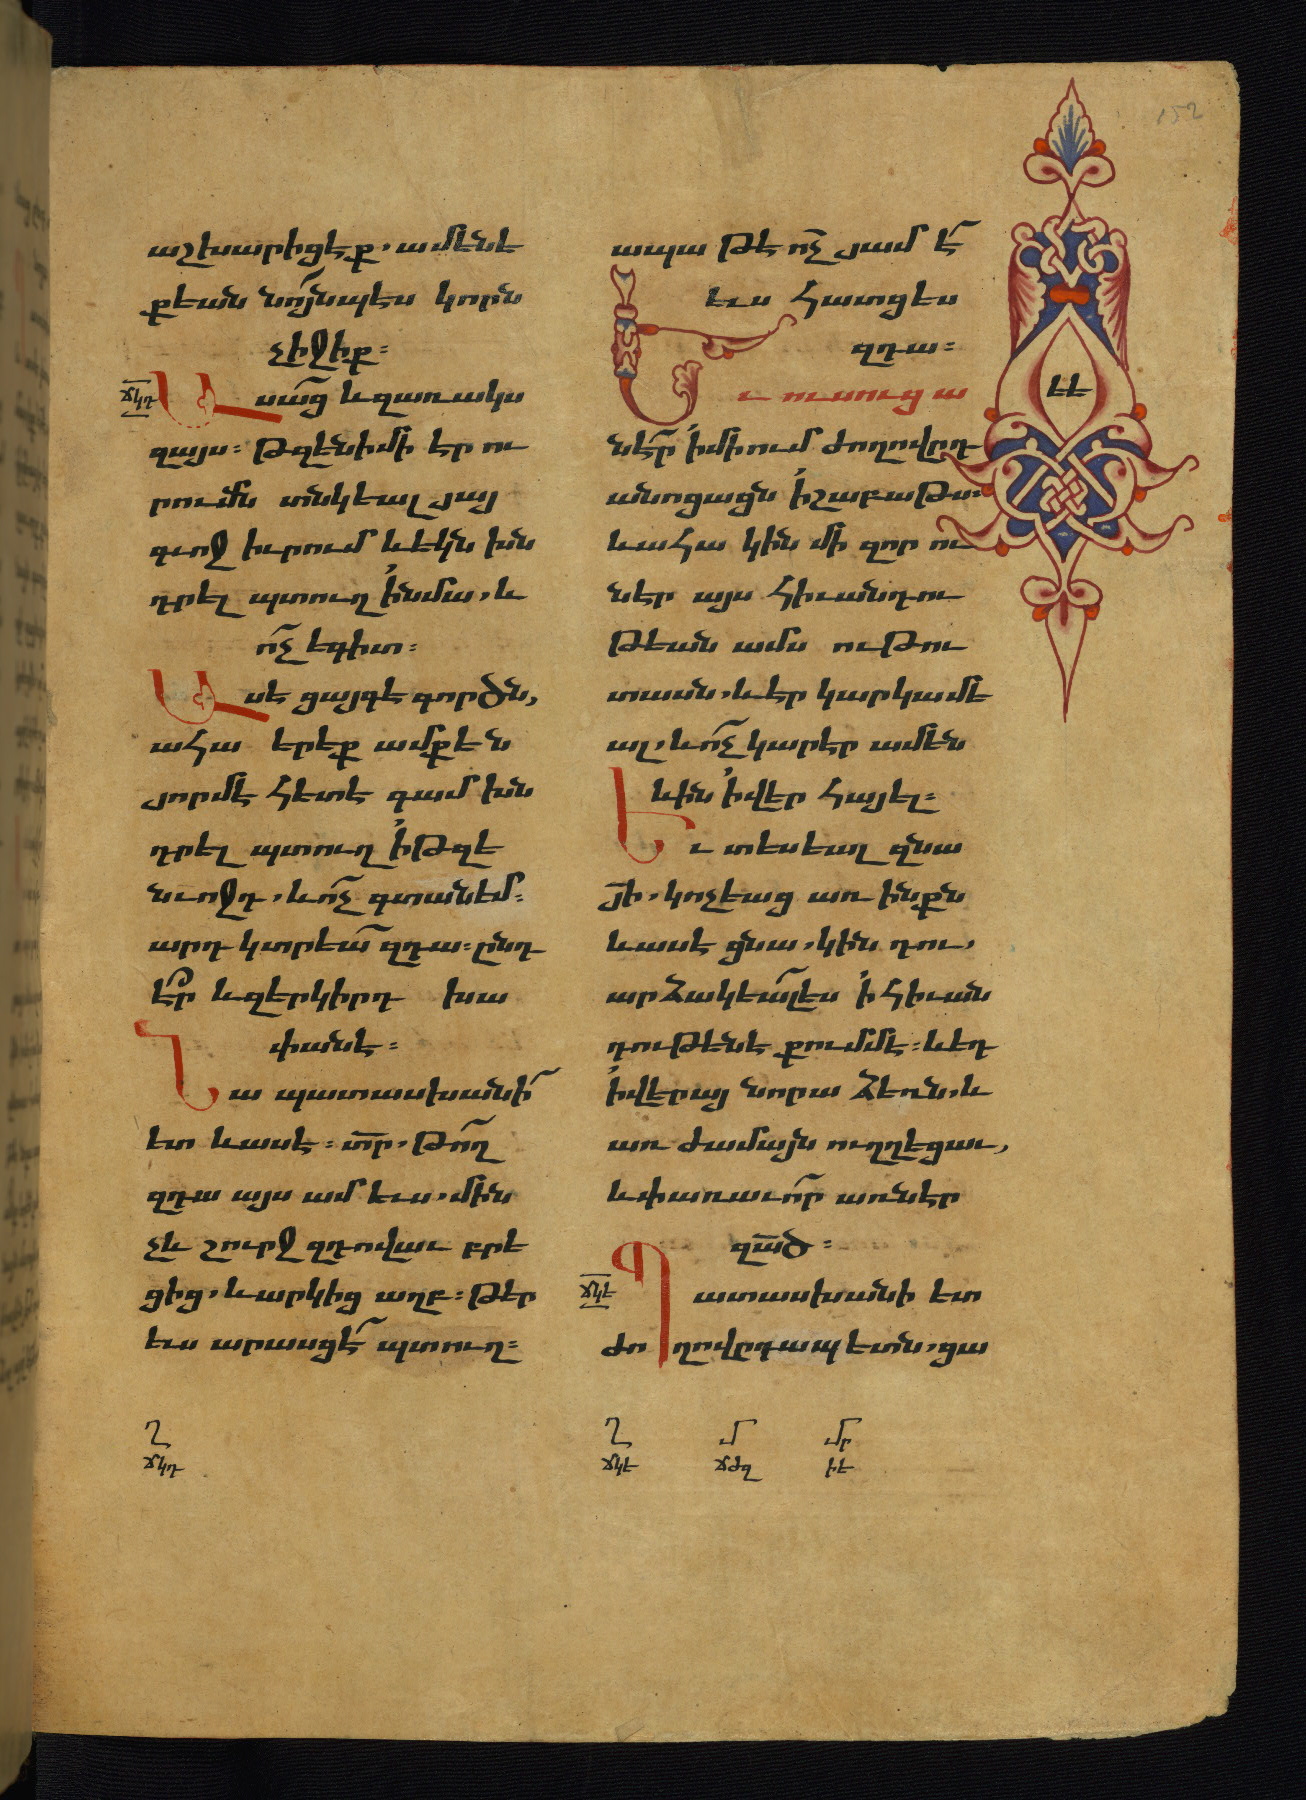 աշխարիցէք. ամենե
քեան նո՛յնպէս կորն
չիջիք։
ճկդ
Ասա՜ց և զառակս
զայս։ Թզենիմի էր ու
րումն տնկեալ յայ
գւոջ իւրում և եկն խն
դրել պտուղ ՛ինմա. և
ո՜չ եգիտ։
Ասե ցայգե գործն,
ահա երեք ամք են
յորմէ հետէ գամ խն
դրել պտուղ ՛ի թզե
նւոջդ. և ո՜չ գտանեմ։
արդ կտրեա՜ զդա։ ընդ
է՞ր և զերկիրդ խա
փանէ։
Նա պատասխանի՜
ետ և ասէ։ տր. թո՜ղ
զդա այս ամ ևս. մին
չև շուրջ զդովաւ բրե
ցից. և արկից աղբ։ թեր
ևս արասցէ՜ պտուղ։
ապա թէ ո՜չ յամ է՜
ևս հատցես
զդա։
Եւ ուսուց ա
նէ՜ր ՛իմիում ժողովրդ
անոցացն ՛ի շաբաթս։
և ահա կին մի զոր ու
ներ այս հիւանդու
թեան ամս ութու
տասն. և էր կարկամե
ալ. և ո՜չ կարէր ամեն
ևին ՛ի վեր հայել։
Եւ տեսեալ զնա
յի. կոչեաց առ ինքն
և ասէ ցնա. կին դու.
արձակեա՜լես ՛ի հիւան
դութենէ քումմէ։ և եդ
՛իվերայ նորա ձեռն. և
առ ժամայն ուղղեցաւ,
և փառաւո՜ր առնէր
զած։
ճկե
Պատասխանի ետ
ժողովրդապետն. ցա
եե
152
Ղ
ճկդ
Ղ
ճկե
Մ
ճժզ
Մր
իե